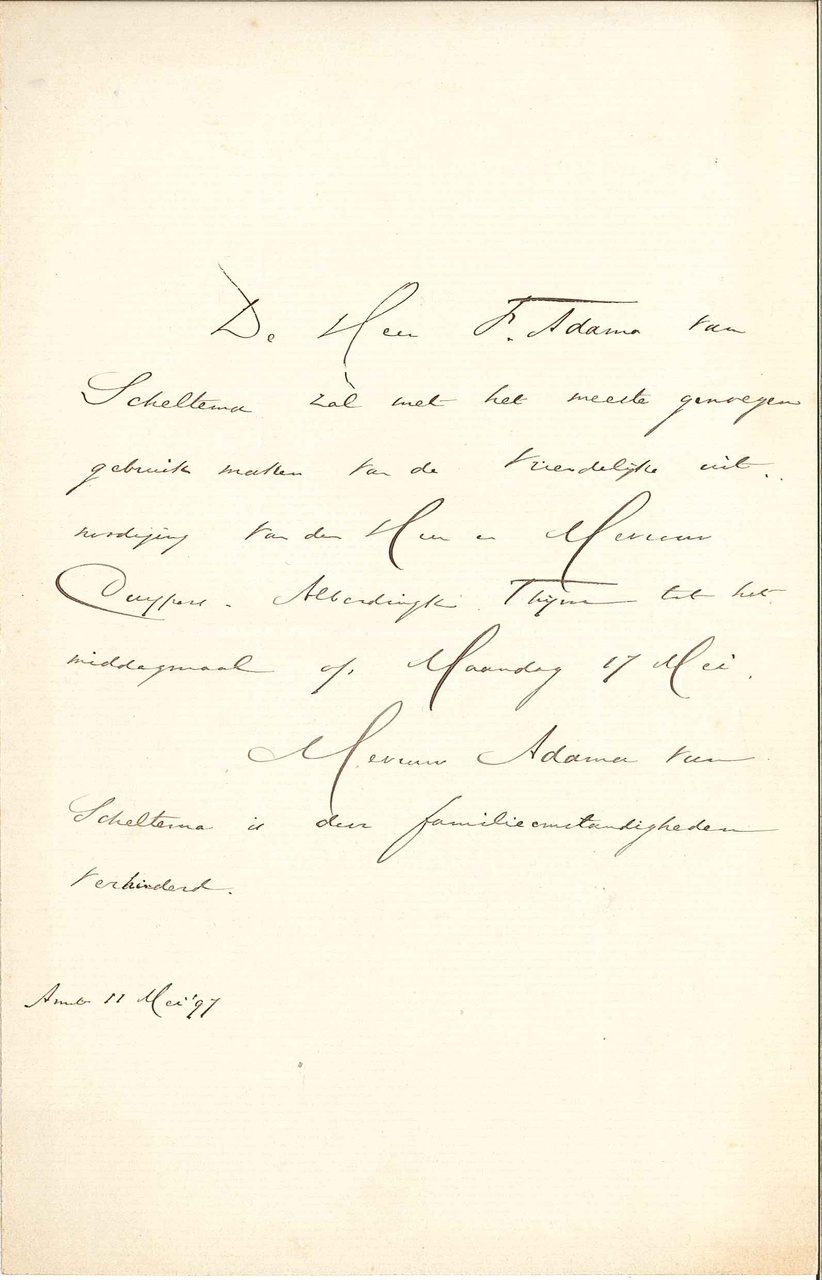 De Heer F. Adama van
Scheltema zal met het meeste genoegen
gebruik maken van de vriendelijke uit-
noodiging van den Heer en Mevrouw
Cuypers-Alberdingk Thijm tot het
middagmaal op Maandag 17 Mei.
Mevrouw Adama van
Scheltema is door familieomstandigheden
verhinderd.
Amst 11 Mei '97